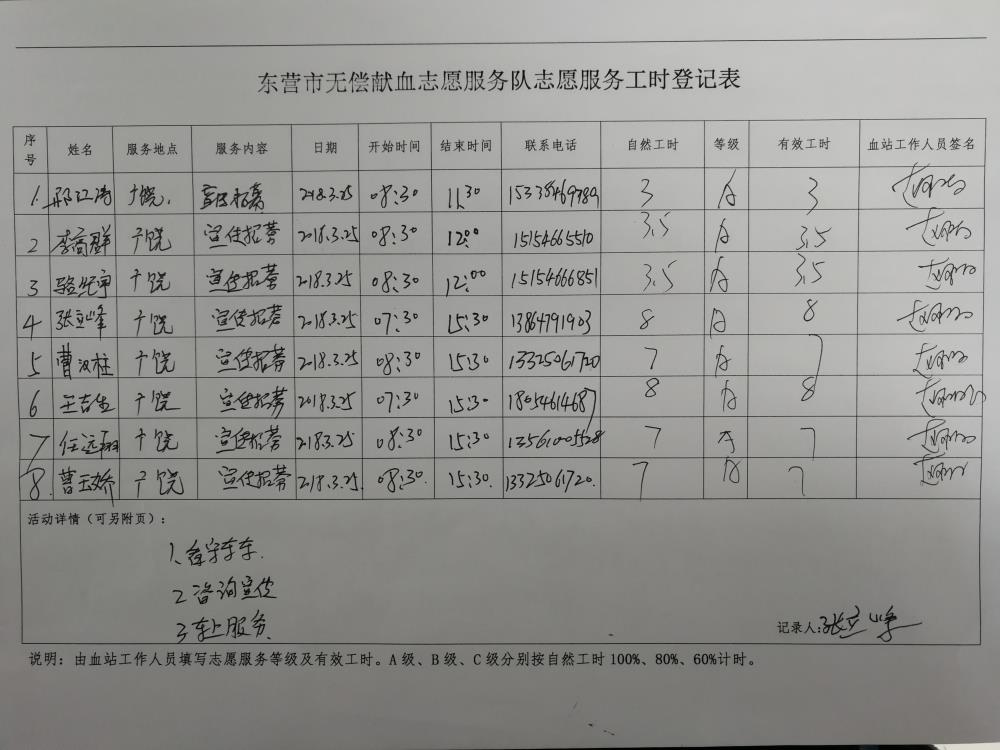 东营市无偿献血志愿服务队志愿服务工时登记表
序号 姓名 服务地点 服务内容 日期 开始时间 结束时间 联系电话 自然工时 等级 有效工时 血站工作人员签名
1. 邢江涛 广饶. 宣传招募 2018.3.25 08:30 11:30 15338469789 3 A 3
2 李高群 广饶 宣传招募 2018.3.25 08:30 12:00 15154665510 3.5 A 3.5
3 广饶 宣传招募 2018.3.25 08:30 12:00 15154666851 3.5 A 3.5
4 张立峰 广饶 宣传招募 2018.3.25 07:30 15:30 13864791903 8 A 8
5 曹汉柱 广饶 宣传招募 2018.3.25 08:30 15:30 13325061720 7 A 7
6 王吉生 广饶 宣传招募 2018.3.25 07:30 15:30 18054614687 8 A 8
7 任远翔 广饶 宣传招募 218.3.25 08:30 15:30 13561005528 7 A 7
8. 曹玉娇 广饶 宣传招募 218.3.25. 08:30. 15:30. 13325061720. 7 A 7
活动详情（可另附页）：
1、值守车车.
2 咨询宣传
3 车上服务
记录人:张立峰
说明：由血站工作人员填写志愿服务等级及有效工时。A级、B级、C级分别按自然工时100%、80%、60%计时。